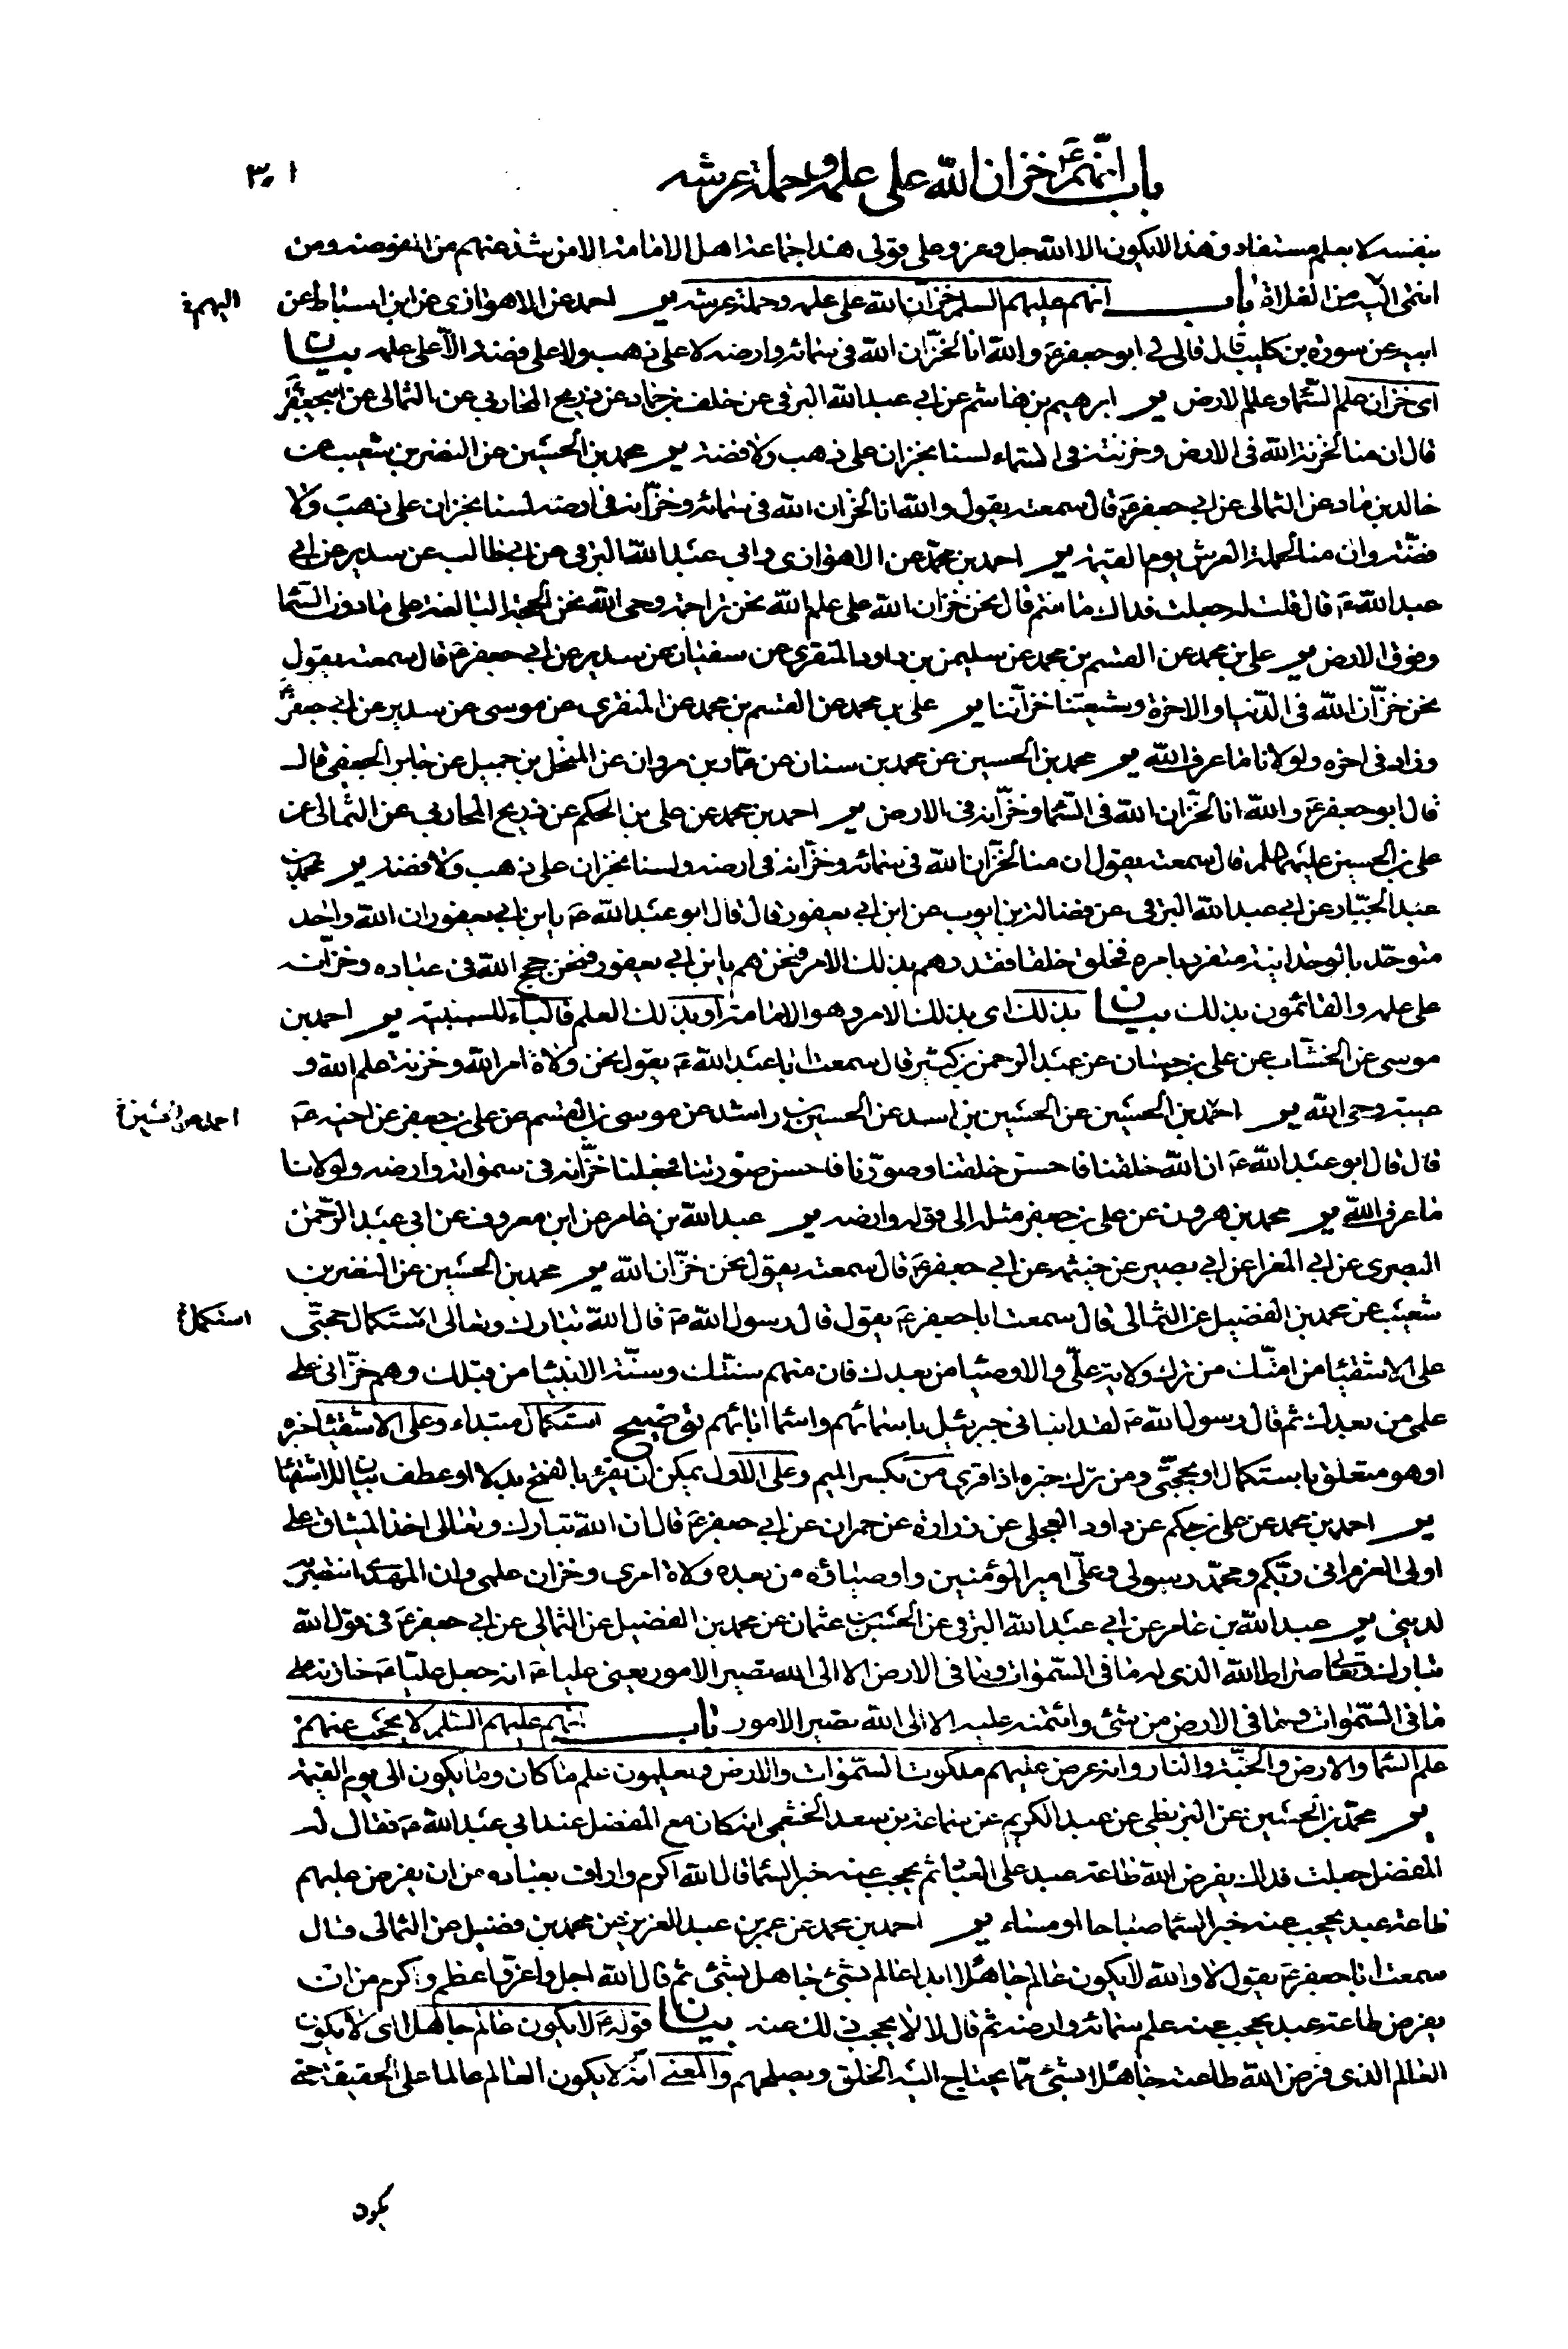 باب انّهم عَ خزان الله على علمه وحملة عرشه
٣٠١
بنفسه لا بعلم مستفاد وهذا لا يكون الا الله جل وعز وعلى قولى هذا جماعة اهل الامامة الا من شذ عنهم من المفوضة ومن
انتمى اليه من الغلاة باب انهم عليهم السلم خزّان الله على علمه وحملة عرشه ير احمد عن الاهوازى عن ابن اسباط عن
ابيه عن سورة بن كليب قال قال لى ابو جعفر عَ والله انا لخزّان الله فى سمائه وارضه لا على ذهب ولا على فضة الّا على علمه بيان
اى خزان علم السّماء وعلم الارض ير ابرهيم بن هاشم عن ابى عبد الله البرقى عن خلف بن حماد عن ذريح المحاربى عن الثمالى عن ابيجعفر عَ
قال ان منا لخزنة الله فى الارض وخزنته فى السّماء لسنا بخزان على ذهب ولا فضة ير محمد بن الحسين عن النضر بن شعيب عن
خالد بن ماد عن الثمالى عن ابى جعفر عَ قال سمعته يقول والله انا لخزان الله فى سمائه وخزّانه فى ارضه لسنا بخزان على ذهب ولا
فضّة وان منا لحملة العرش يوم القيمة ير احمد بن محمّد عن الاهوازى وابى عبد الله البرقى عن ابى طالب عن سدير عن ابى
عبد الله عَ قال قلت له جعلت فداك ما انتم قال نحن خزان الله على علم الله نحن تراجمة وحى الله نحن الحجة البالغة على ما دون السّماء
وفوق الارض ير على بن محمد عن القسم بن محمد عن سليمن بن داود المنقرى عن سفيان عن سدير عن ابى جعفر عَ قال سمعته يقول
نحن خزّان الله فى الدّنيا والاخرة وشيعتنا خزّاننا ير على بن محمد عن القسم بن محمد عن المنقرى عن موسى عن سدير عن ابى جعفر عَ
وزاد فى اخره ولولانا ما عرف الله ير محمد بن الحسين عن محمد بن سنان عن عمّار بن مروان عن المنخل بن جميل عن جابر الجعفى قال
قال ابو جعفر عَ والله انا لخزّان الله فى السّماء وخزّانه فى الارض ير احمد بن محمد عن على بن الحكم عن ذريح المحاربى عن الثمالى عن
على بن الحسين عليهما السلم قال سمعته يقول ان منا لخزّان الله فى سمائه وخزّانه فى ارضه ولسنا بخزان على ذهب ولا فضة ير محمد بن
عبد الجبّار عن ابى عبد الله البرقى عن فضالة بن ايوب عن ابن ابى يعفور قال قال ابو عبد الله عَ يا بن ابى يعفور ان الله واحد
متوحّد بالوحدانية متفرد بامره فخلق خلقا فقدرهم بذلك الامر فنحن هم يا بن ابى يعفور فنحن حجج الله فى عباده وخزّانه
على علمه والقائمون بذلك بيان بذلك اى بذلك الامر وهو الامامة او بذلك العلم فالباء للسببية ير احمد بن
موسى عن الخشّاب عن على بن حسّان عن عبد الرحمن بن كثير قال سمعت ابا عبد الله عَ يقول نحن ولاة امر الله وخزنة علم الله و
عيبة وحى الله ير احمد بن الحسين عن الحسين بن اسد عن الحسين بن راشد عن موسى بن القسم عن على بن جعفر عن اخيه عَ
قال قال ابو عبد الله عَ ان الله خلقنا فاحسن خلقنا وصوّرنا فاحسن صورتنا فجعلنا خزّانه فى سمواته وارضه ولولانا
ما عرف الله ير محمد بن هرون عن على بن جعفر مثله الى قوله وارضه ير عبد الله بن عامر عن ابن معروف عن ابى عبد الرّحمن
البصرى عن ابى المغرا عن ابى بصير عن خيثمة عن ابى جعفر عَ قال سمعته يقول نحن خزّان الله ير محمد بن الحسين عن النضر بن
شعيب عن محمد بن الفضيل عن الثمالى قال سمعت ابا جعفر عَ يقول قال رسول الله صَ قال الله تبارك وتعالى استكمال حجتى
على الاشقياء من امتّك من ترك ولاية علىّ والاوصياء من بعدك فان منهم سنّتك وسنّة الانبياء من قبلك وهم خزّانى على
علمى من بعدك ثم قال رسول الله صَ لقد انبانى جبرئيل باسمائهم واسماء ابائهم توضيح استكمال مبتداء وعلى الاشقياء خبره
او هو متعلق باستكمال او بحجتّى ومن ترك خبره اذا قرى من بكسر الميم وعلى الاول يمكن ان يقرء بالفتح بدلا او عطف بيان للاشقياء
ير احمد بن محمد عن على بن حكم عن داود العجلى عن زرارة عن حمران عن ابى جعفر عَ قال ان الله تبارك وتعالى اخذ الميثاق على
اولى العزم انى ربّكم ومحمّد رسولى وعلىّ امير المؤمنين واوصياؤه من بعده ولاة امرى وخزان علمى وان المهدى انتصر به
لدينى ير عبد الله بن عامر عن ابى عبد الله البرقى عن الحسين بن عثمان عن محمد بن الفضيل عن الثمالى عن ابى جعفر عَ فى قول الله
تبارك وتعالى صراط الله الذى له ما فى السّموات وما فى الارض الا الى الله تصير الامور يعنى عليا عَ انه جعل عليّا عَ خازنه على
ما فى السّموات وما فى الارض من شئ وائتمنه عليه الا الى الله تصير الامور باب انّهم عليهم السّلم لا يحجب عنهم
علم السّماء والارض والجنّة والنار وانه عرض عليهم ملكوت السّموات والارض ويعلمون علم ما كان وما يكون الى يوم القيمة
ير محمّد بن الحسين عن البزنطى عن عبد الكريم عن سماعة بن سعد الخثعمى انه كان مع المفضل عند ابى عبد الله عَ فقال له
المفضل جعلت فداك يفرض الله طاعة عبد على العباد ثم يحجب عنه خبر السّماء قال الله اكرم وارأف بعباده من ان يفرض عليهم
طاعة عبد يحجب عنه خبر السّماء صباحا او مساء ير احمد بن محمد عن عمر بن عبد العزيز عن محمد بن فضيل عن الثمالى قال
سمعت ابا جعفر عَ يقول لا والله لا يكون عالم جاهلا ابدا عالم بشئ جاهل بشئ ثم قال الله اجل واعزّ واعظم واكرم من ان
يفرض طاعة عبد يحجب عنه علم سمائه وارضه ثم قال لا لا يحجب ذلك عنه بيان قوله عَ لا يكون عالم جاهلا اى لا يكون
العالم الذى فرض الله طاعته جاهلا بشئ ممّا يحتاج اليه الخلق ويصلحهم والمعنى انّه لا يكون العالم عالما على الحقيقة حتى
يكون